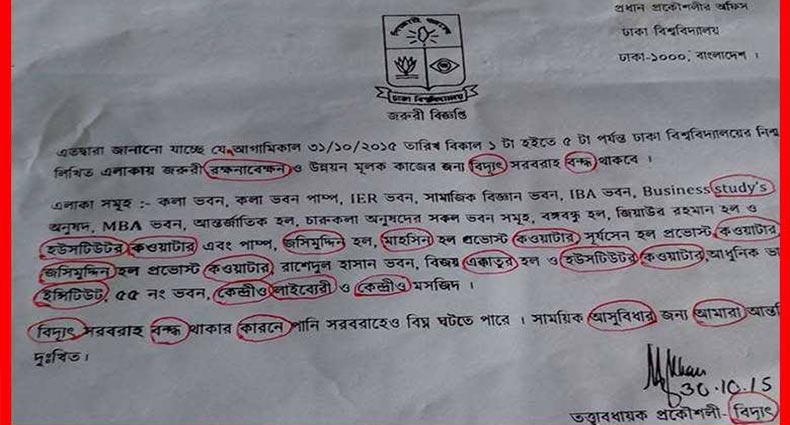 প্রধান প্রকৌশলীর অফিস
ঢাকা বিশ্ববিদ্যালয়
ঢাকা-১০০০, বাংলাদেশ ।
শিক্ষাই আলো
ঢাকা বিশ্ববিদ্যালয়
জরুরী বিজ্ঞপ্তি
এতদ্বারা জানানো যাচ্ছে যে, আগামিকাল ৩১/১০/২০১৫ তারিখ বিকাল ১ টা হইতে ৫ টা পর্যন্ত ঢাকা বিশ্ববিদ্যালয়ের নিম্ন
লিখিত এলাকায় জরুরী রক্ষনাবেক্ষন ও উন্নয়ন মূলক কাজের জন্য বিদ্যৎ সরবরাহ বন্দ্ধ থাকবে ।
এলাকা সমূহ :- কলা ভবন, কলা ভবন পাম্প, IER ভবন, সামাজিক বিজ্ঞান ভবন, IBA ভবন, Business study's
অনুষদ, MBA ভবন, আন্তর্জাতিক হল, চারুকলা অনুষদের সকল ভবন সমূহ, বঙ্গবন্ধু হল, জিয়াউর রহমান হল ও
হউসটিউটর কওয়াটার এবং পাম্প, জসিমুদ্দিন হল, মাহসিন হল প্রভোস্ট কওয়াটার, সূর্যসেন হল প্রভোস্ট, কওয়াটার,
জসিমুদ্দিন হল প্রভোস্ট কওয়াটার, রাশেদুল হাসান ভবন, বিজয় একাতুর হল ও হউসটিউটর কওয়াটার, আধুনিক ভা
ইন্সটিউট, ৫৫ নং ভবন, কেন্দ্রীও লাইব্যেরী ও কেন্দ্রীও মসজিদ ।
বিদ্যৎ সরবরাহ বন্দ্ধ থাকার কারনে পানি সরবরাহেও বিঘ্ন ঘটতে পারে । সাময়িক আসুবিধার জন্য আমারা আন্ত
দুঃখিত।
30.10.15
তত্তাবধায়ক প্রকৌশলী- বিদ্যৎ